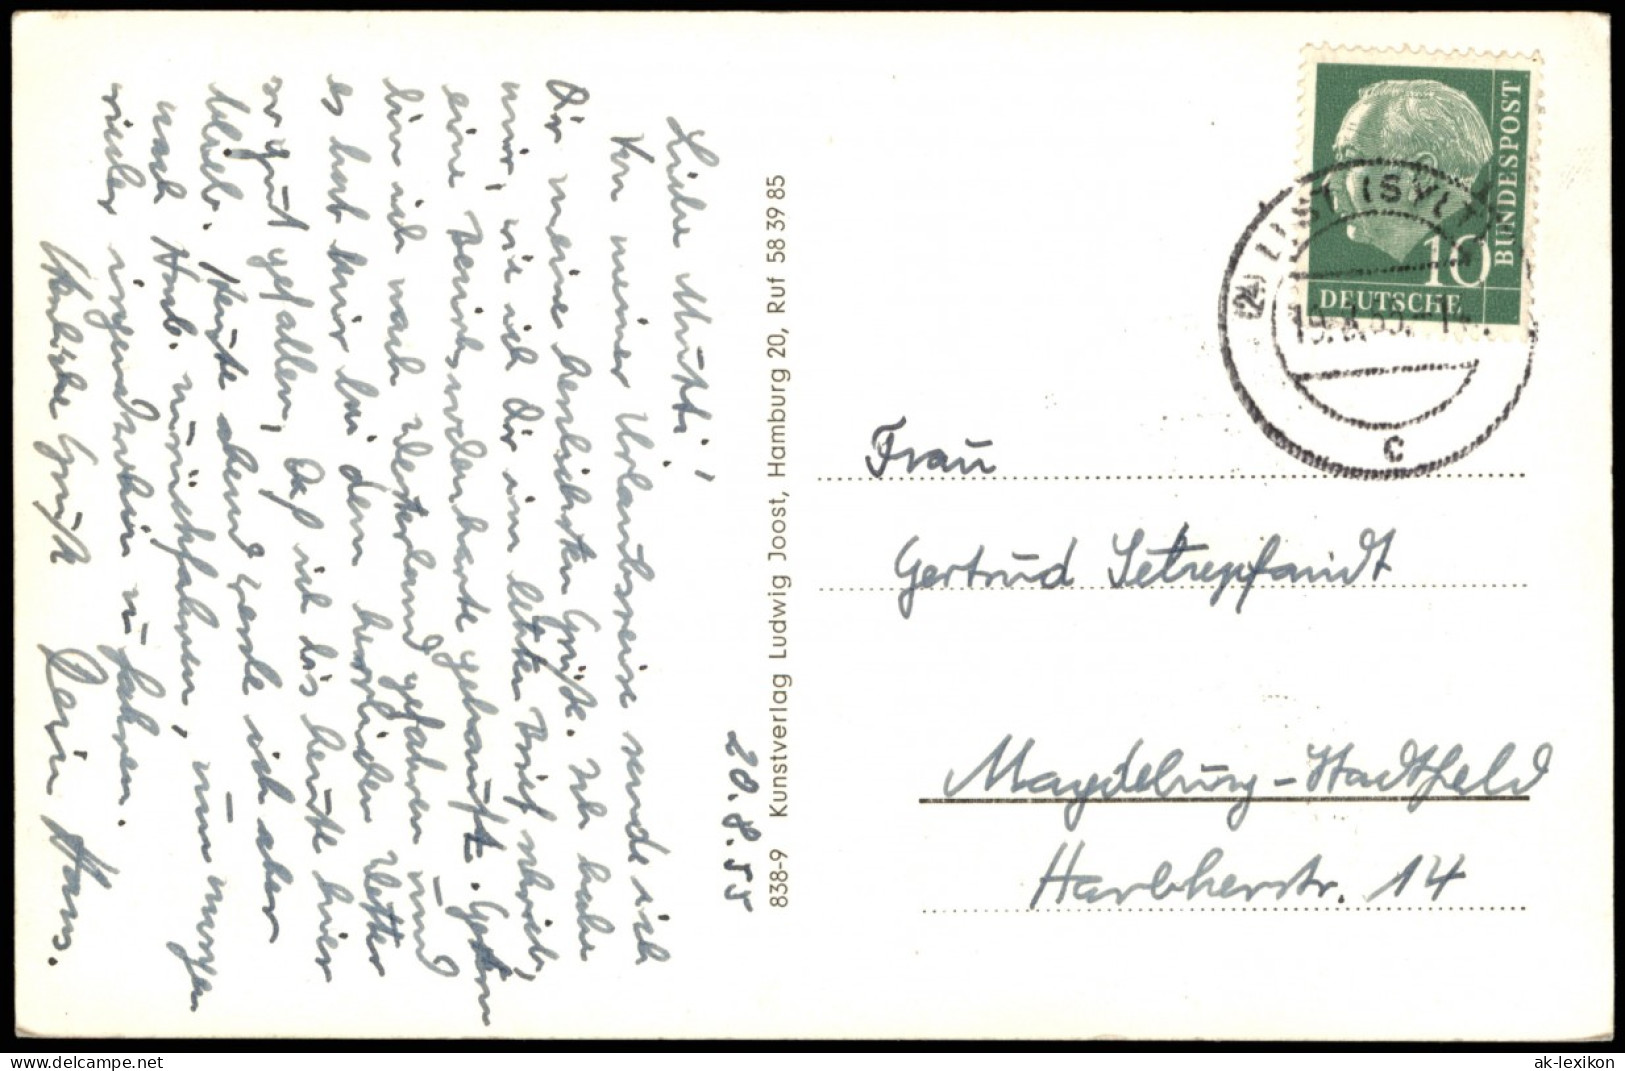 20.8.55
Liebe Mutti!
Von meiner Urlaubsreise sende ich
Dir meine herzlichsten Grüße. Ich habe
mir, wie ich Dir im letzten Brief schrieb,
eine Bezirkswochenkarte gekauft. Gestern
bin ich nach Westerland gefahren und
es hat mir bei dem herrlichen Wetter
so gut gefallen, daß ich bis heute hier
blieb. Heute abend werde ich aber
nach Hmb. zurückfahren, um morgen
wieder irgendwohin zu fahren.
Herzliche Grüße Dein Hans.
838-9 Kunstverlag Ludwig Joost, Hamburg 20, Ruf 58 39 85
DEUTSCHE BUNDESPOST
10
LIST (SYLT)
c
Frau
Gertrud Setzepfandt
Magdeburg-Stadtfeld
Harbkerstr. 14
www.delcampe.net
ak-lexikon